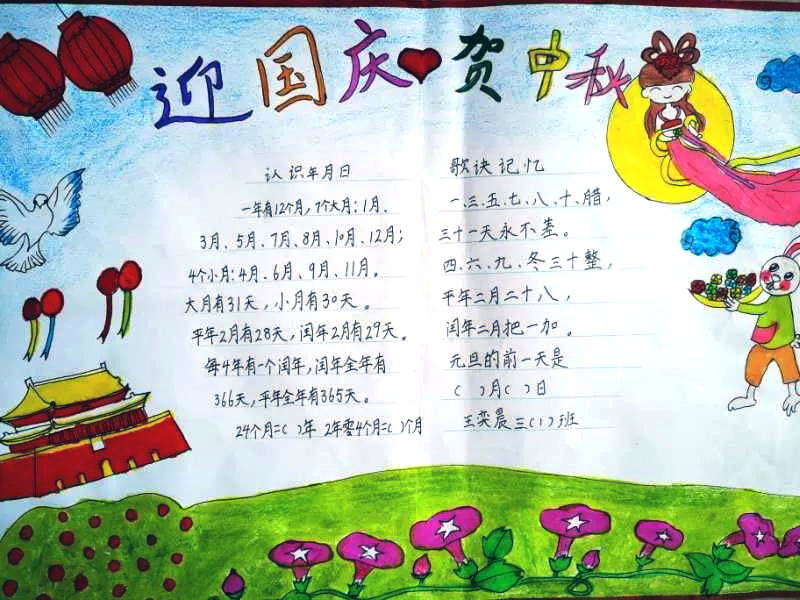 迎国庆贺中秋
认识年月日
一年有12个月,7个大月:1月、
3月、5月、7月、8月、10月、12月;
4个小月:4月、6月、9月、11月。
大月有31天,小月有30天。
平年2月有28天,闰年2月有29天。
每4年有一个闰年,闰年全年有
366天,平年全年有365天。
24个月=( )年 2年零4个月=( )个月
歌诀记忆
一、三、五、七、八、十、腊,
三十一天永不差。
四、六、九、冬三十整,
平年二月二十八,
闰年二月把一加。
元旦的前一天是
( )月( )日
王奕晨三(1)班